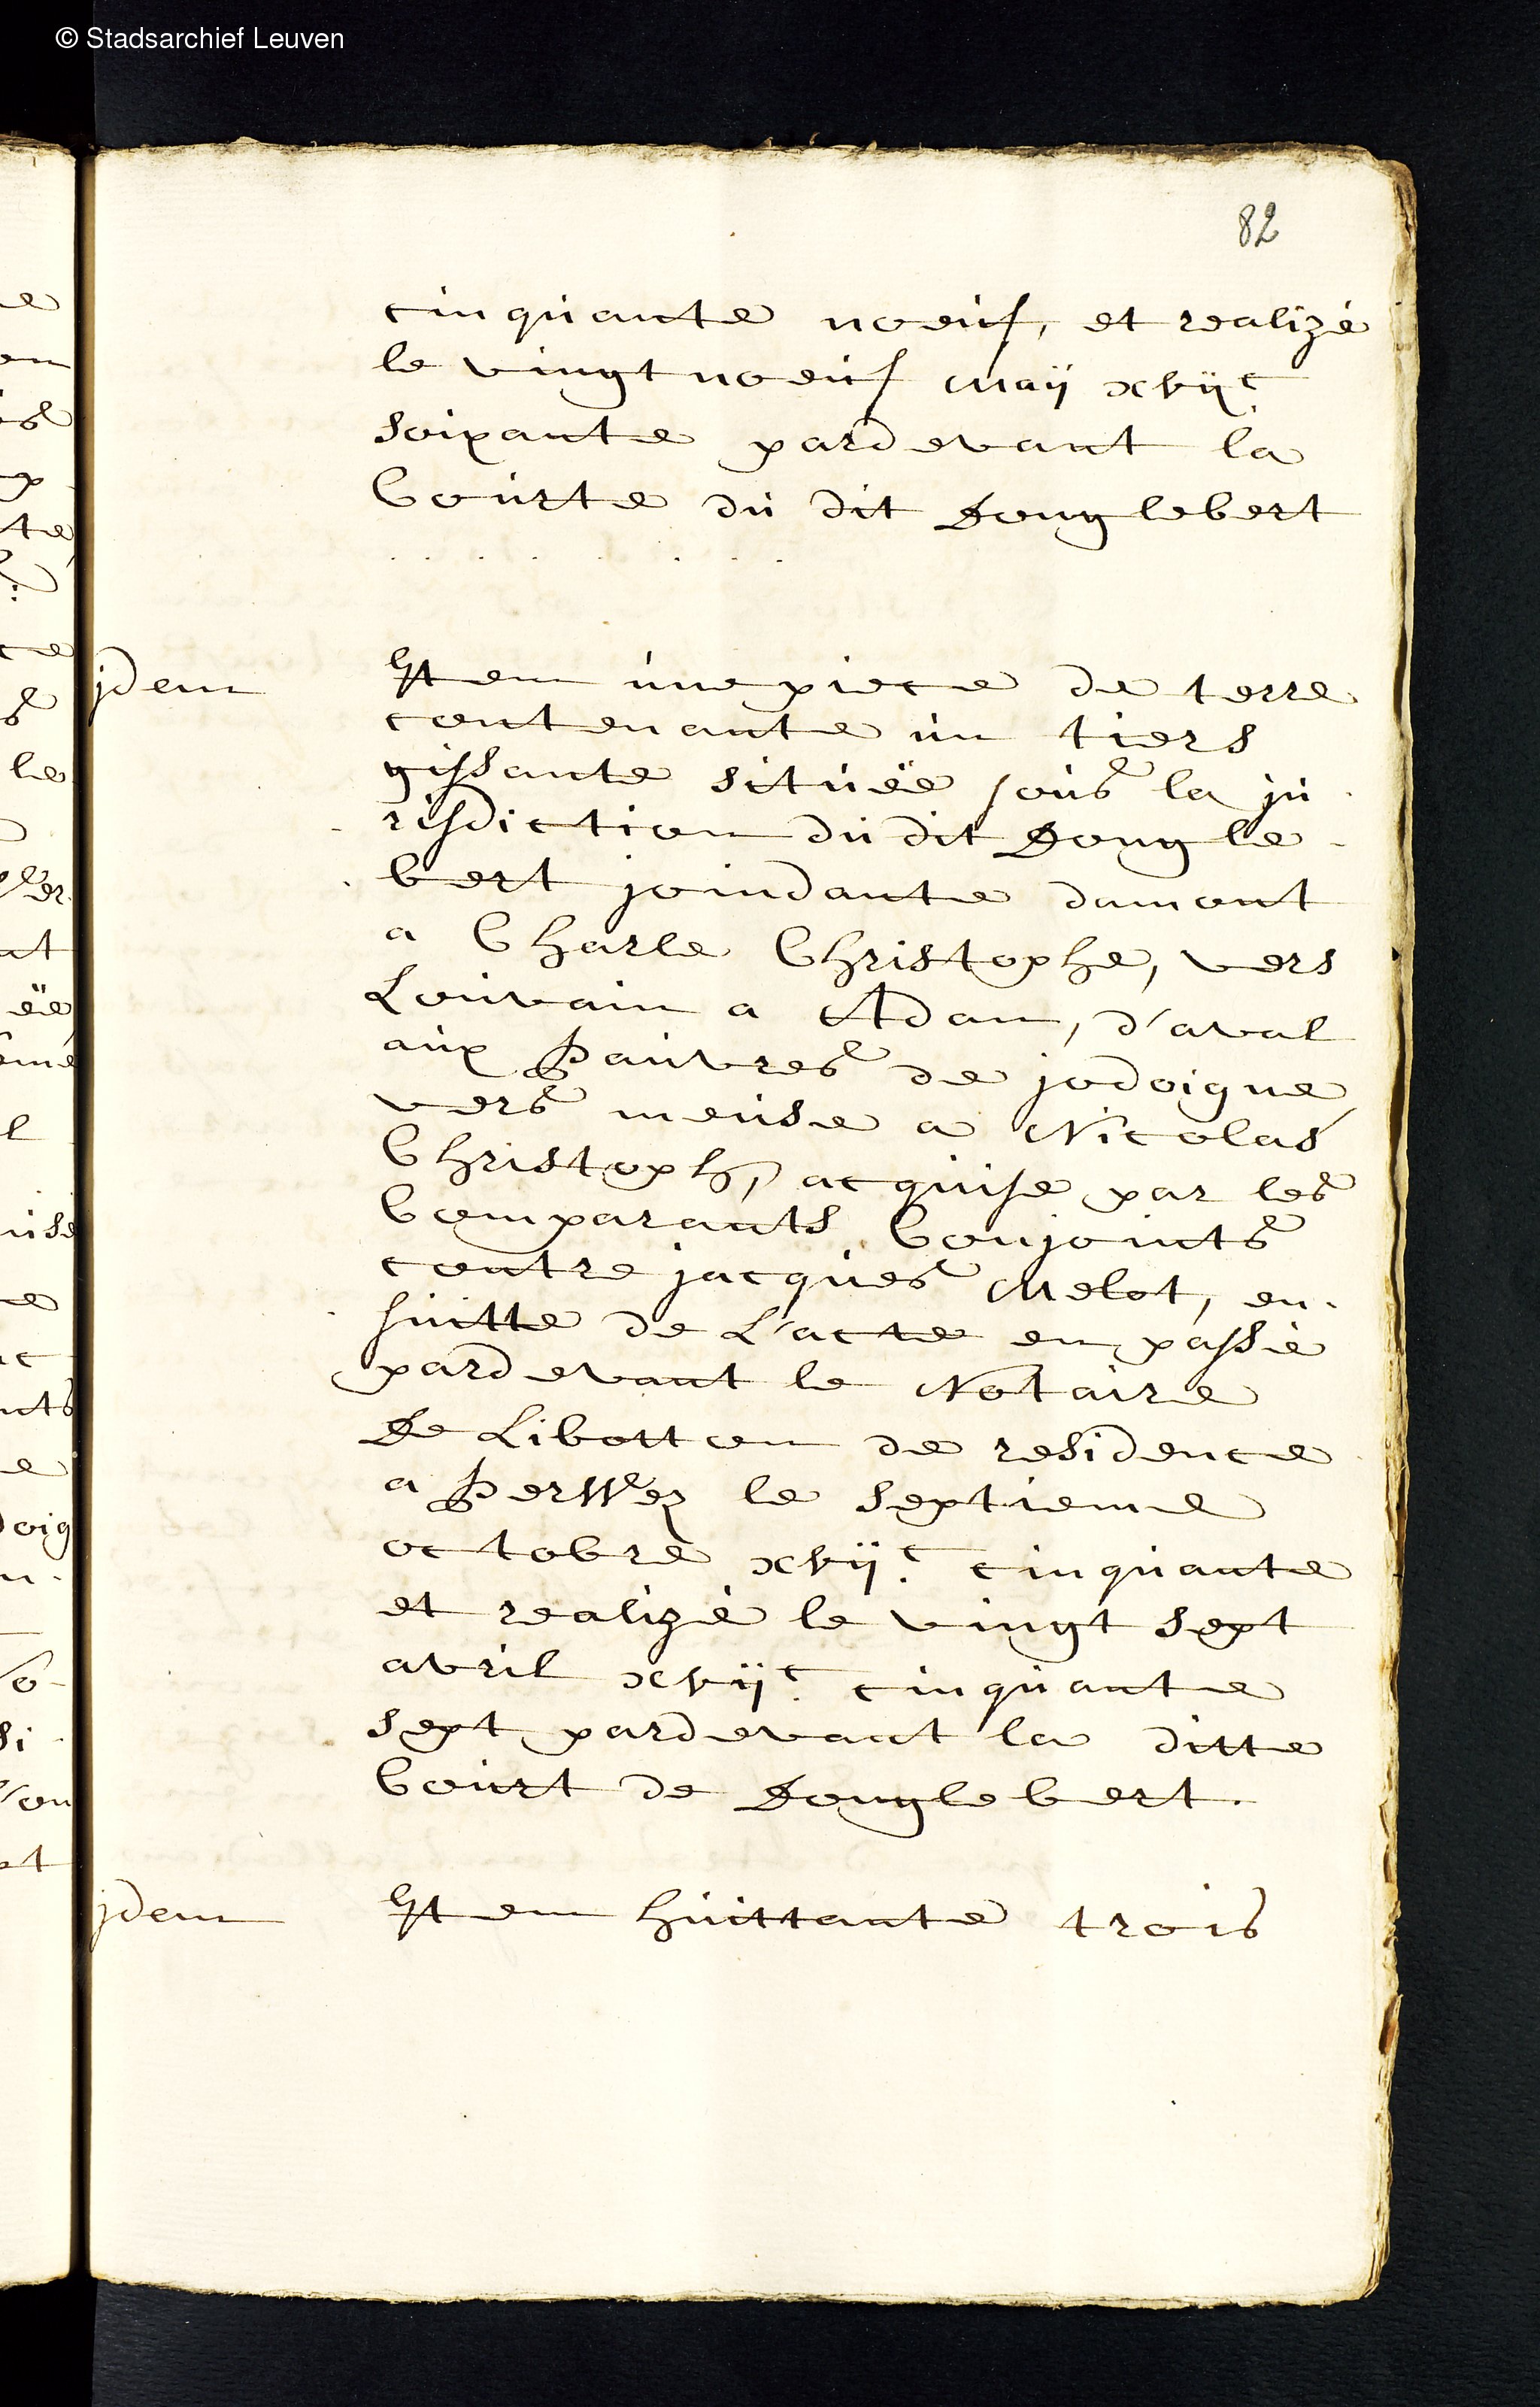 © Stadsarchief Leuven
82
cinquante noeuf, et realizé
le vingt noeuf Maÿ xvijc
soixante pardevant la
Courte du dit Donglebert
jdem
Item une piece de terre
contenante un tiers
gissante situëe sous la ju
risdiction du dit Dongle
bert joindante damont
a Charle Christophe, vers
Louvain a Adam, d'aval
aux Pauvres de jodoigne
vers meuse a Nicolas
Christoph, acquise par les
Comparants Conjoints
contre jacques Melot, en
suitte de L'acte en passé
pardevant le Notaire
De Libotton de residence
a Perwez le septieme
octobre xvijc cinquante
et realizé le vingt sept
avril xvijc cinquante
sept pardevant la ditte
Court de Donglebert.
jdem
Item huittante trois